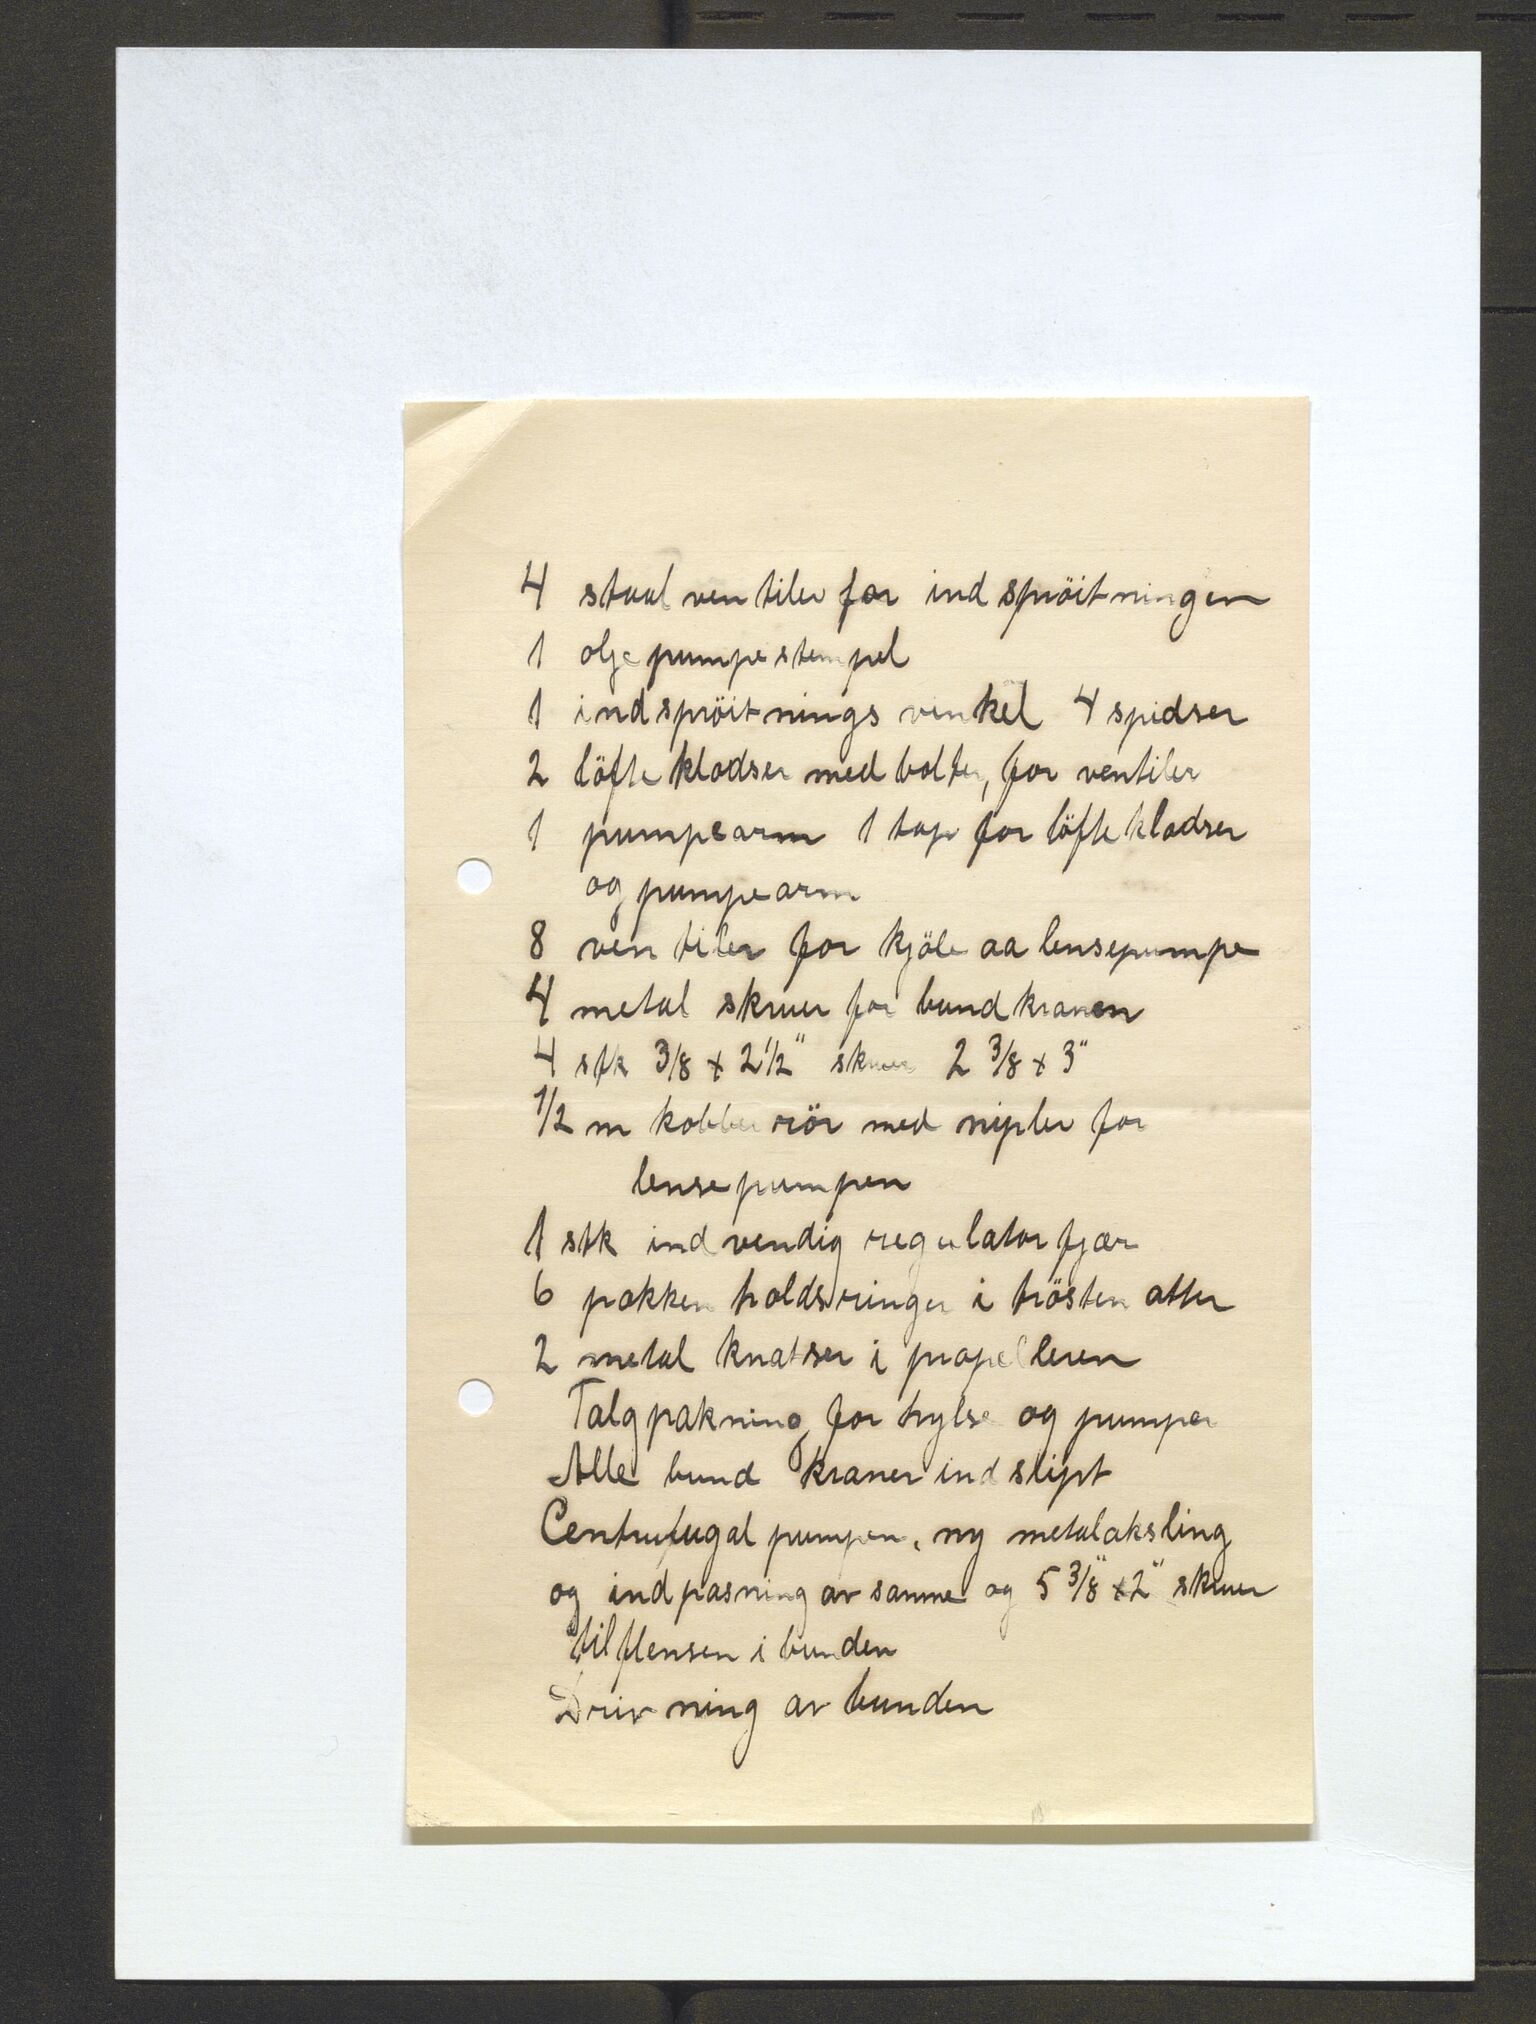 4 staal ventiler for indspröitningen
1 olje pumpestempel
1 indspröitnings vinkel 4 spidser
2 löfte klodser med bolter, for ventiler
1 pumpearm 1 tap for löfte klodser
og pumpearm
8 ventiler for kjöle aa lensepumpe
4 metal skruer for bundkranen
4 stk 3/8 x 2 1/2" skruer 2 3/8 x 3"
1/2 m kobber rör med nipler for
lensepumpen
1 stk indvendig regulator fjær
6 pakken holdsringer i trösten atter
2 metal knatser i propelleren
Talgpakning for hylse og pumper
Alle bund kraner indslipt
Centrufugal pumpen, ny metalaksling
og indpasning av samme og 5 3/8" x 2" skruer
til flensen i bunden
Drivning av bunden